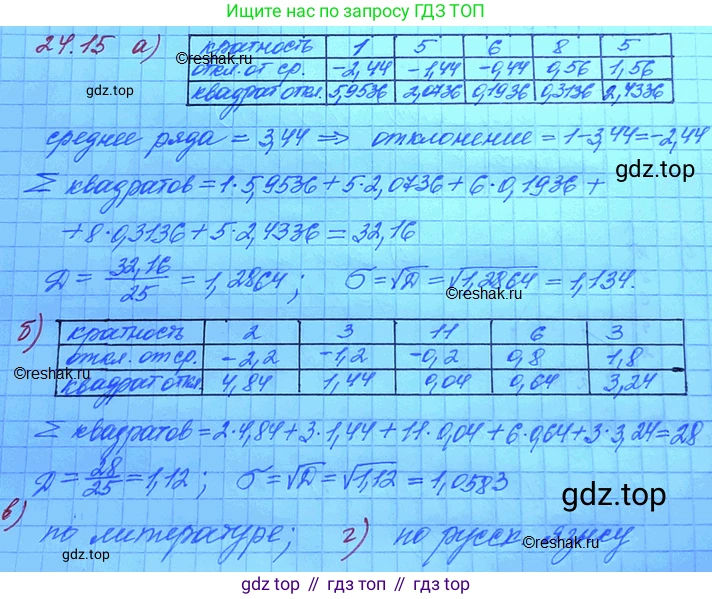 Ищите нас по запросу ГДЗ ТОП
24.15 а) кратность 1 5 6 8 5
откл. от ср. -2,44 -1,44 -0,44 0,56 1,56
квадрат откл. 5,9536 2,0736 0,1936 0,3136 2,4336
©reshak.ru
gdz.top
среднее ряда = 3,44 ⇒ отклонение = 1-3,44=-2,44
gdz.top
Σ квадратов = 1·5,9536+5·2,0736+6·0,1936+
+8·0,3136+5·2,4336=32,16
Д = 32,16/25 = 1,2864; σ=√Д=√1,2864=1,134.
©reshak.ru
б) кратность 2 3 11 6 3
откл. от ср. -2,2 -1,2 -0,2 0,8 1,8
квадрат откл. 4,84 1,44 0,04 0,64 3,24
©reshak.ru
Σ квадратов=2·4,84+3·1,44+11·0,04+6·0,64+3·3,24=28
Д = 28/25 = 1,12; σ=√Д=√1,12=1,0583
gdz.top
в) по литературе; г) по русск. языку
gdz.top
©reshak.ru
gdz top // гдз топ // гдз.top // gdz.top